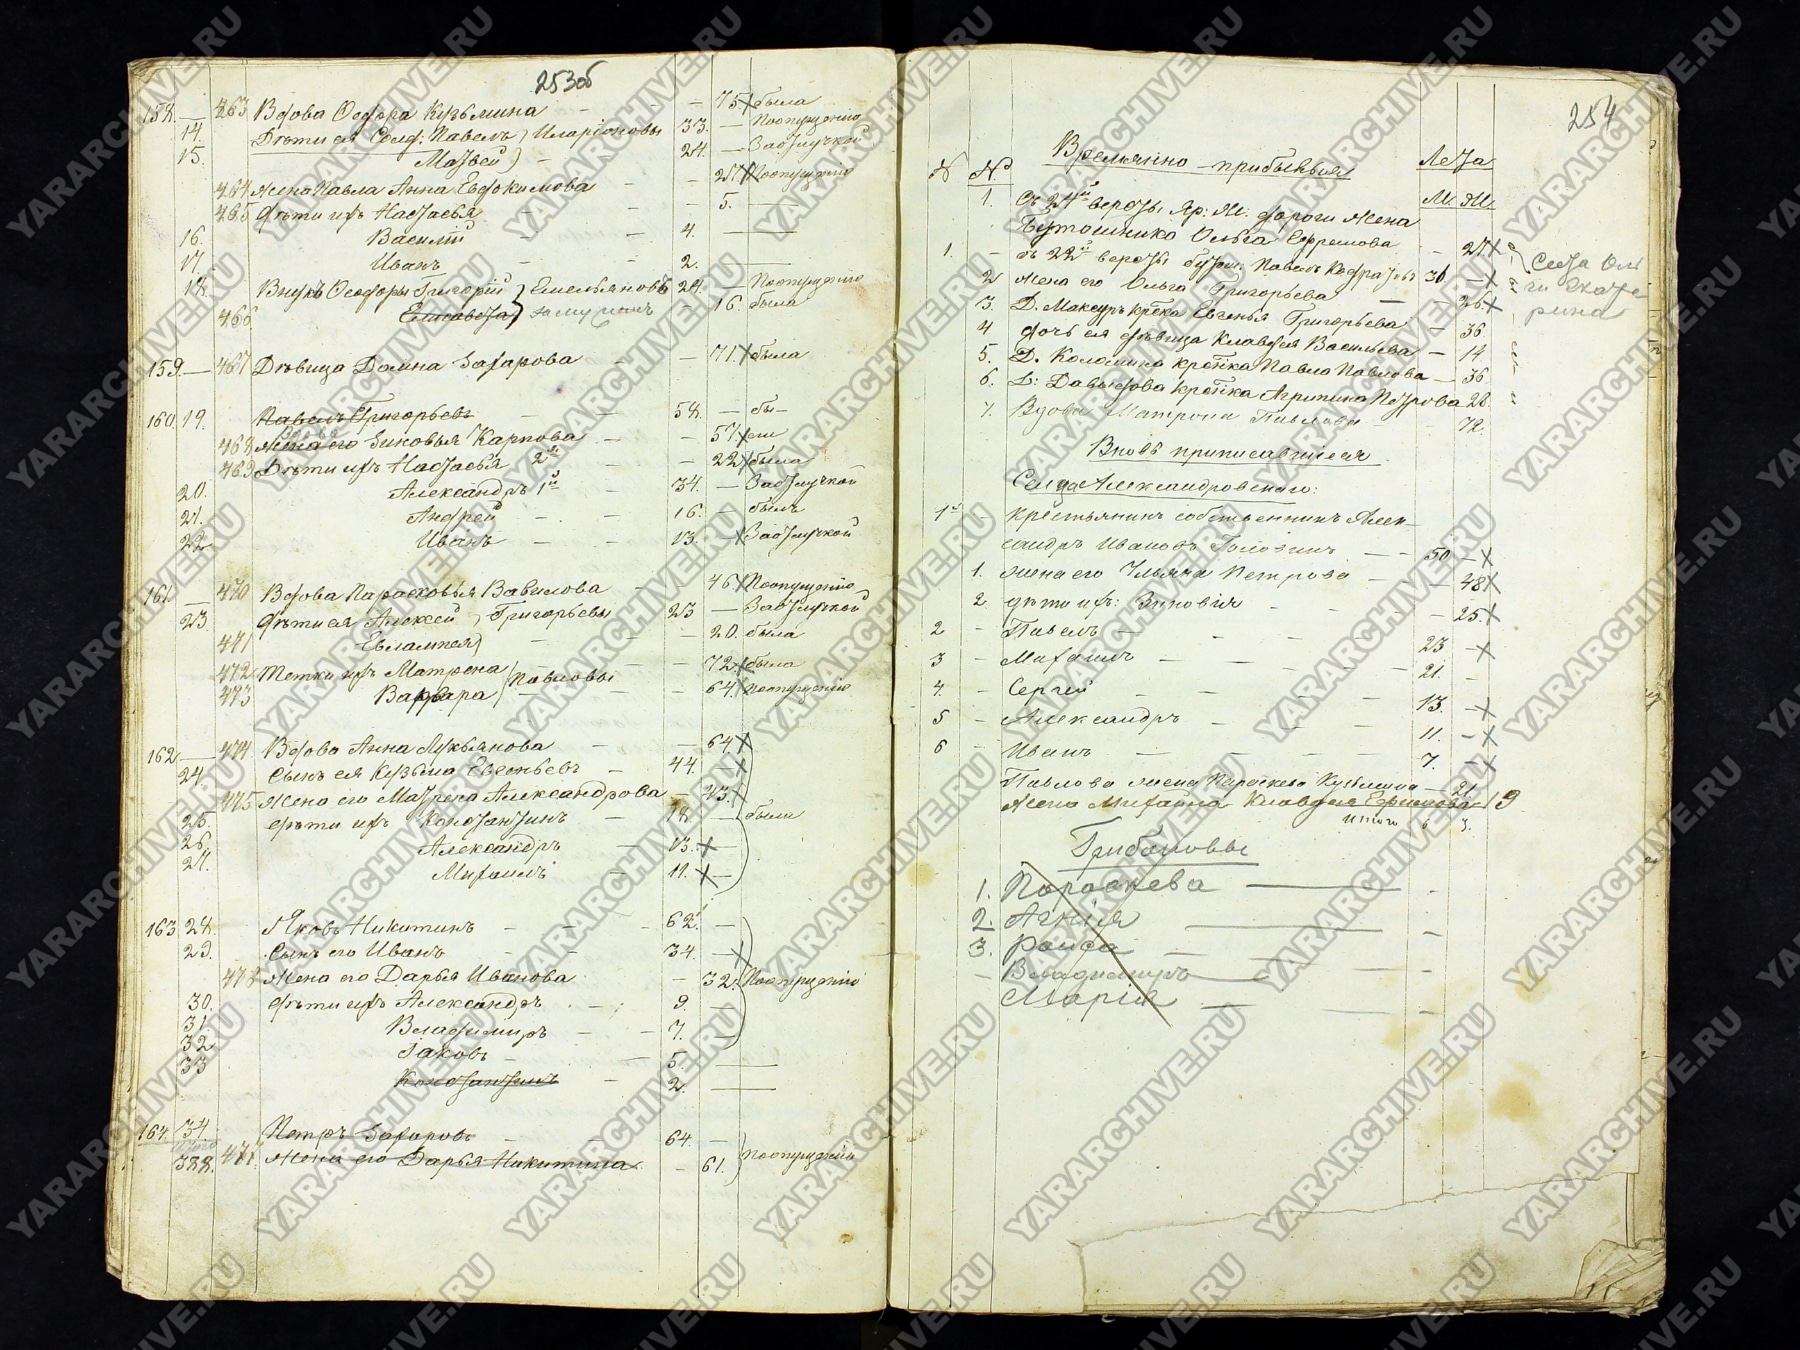 253об
158. — 463 Вдова Ѳедора Кузьмина — — 75 × была
14. Дѣти ея Солд: Павелъ } Иларіоновы 33. — По опущенію
15. Матвей } — 24. — За отлучкой
464 Жена Павла Анна Евдокимова — — 27 × По опущенію
465 Дѣти ихъ Настасья — — 5. —
16. Василій — — 4. —
17. Иванъ — — 2. —
18. Внукъ Ѳедоры Григорій } Емельяновы 24. — По опущенію
466 Елисавета } замужемъ — 16. была
159. — 467 Дѣвица Домна Захарова — — 71. × была
160. 19. Павелъ Григорьевъ — — 58. — бы—
468 Жена его Зиновья Карпова — — 57 ×
469 Дѣти ихъ Настасья 2я — — 22 × была
20. Александръ 1й — 34. — За отлучкой
21. Андрей — — 16. — былъ
22 Иванъ — — 13. — × За отлучкой
161. — 470 Вдова Парасковья Вавилова — 46 × По опущенію
23. Дѣти ея Алексей } Григорьевы 23 — За отлучкой
471 Евлампея } — — 20. была
472 Тетки ихъ Матрена } Павловы — 72. × была
473 Варвара } — — 64. × По опущенію
162 — 474 Вдова Анна Лукьянова — — 64. ×
24. Сынъ ея Кузьма Евгеньевъ — 44. — ×
475 Жена его Матрена Александрова — 43. ×
25. Дѣти ихъ Константинъ — 18. — были
26. Александръ — 13. ×
27. Михаилъ — 11. × —
163 28. Яковъ Никитинъ — — 62. —
29. Сынъ его Иванъ — — 34. — ×
476 Жена его Дарья Иванова — 32. По опущенію
30. Дѣти ихъ Александръ — 9 —
31. Владимиръ — — 7. —
32 Іаковъ — — 5. —
33 Константинъ — 2. —
164. 34. Петръ Захаровъ — — 64. —
388. 477. Жена его Дарья Никитина — 61. По опущенію
254
Времянно прибывшія Лета
№ № М. Ж.
1. Съ 24й версты Яр: Ж: дороги жена
Буташника Ольга Ефремова — 27 ×
1. съ 22й версты бутош: Павелъ Кодратьевъ 31 — × Сестра Оль
2 Жена его Ольга Григорьева — 26 × ги Екате
3. Д. Максуръ крѣка Евгенья Григорьева — 36 рина
4. дочь ея дѣвица Клавдея Васильева — 14.
5. Д. Коломина крестка Павла Павлова — 36.
6. Д: Давыдова крестка Агрипина Петрова 28.
7. Вдова Матрона Павлова — 72.
Вновь приписавшіеся
Сельца Александровскаго:
1й крестьянинъ собственникъ Алек—
сандръ Ивановъ Голозинъ — — 50 — ×
1. Жена его Ульяна Петрова — — 48 ×
2 дѣти ихъ: Зиновія — — — 25. ×
2 — Павелъ — — — — 23 — ×
3 — Михаилъ — — — 21. —
4. — Сергей — — — 13. — ×
5 — Александръ — — — 11. — ×
6 — Иванъ — — — — 7. — ×
Павлова жена Параскева Кузьмина — 21.
Жена Михаила Клавдея Ефимова — 19
Итого 6 5.
Грибановы
1. Параскева — —
2. Агнія — —
3. Раиса — —
— Владимиръ — —
Марія — —